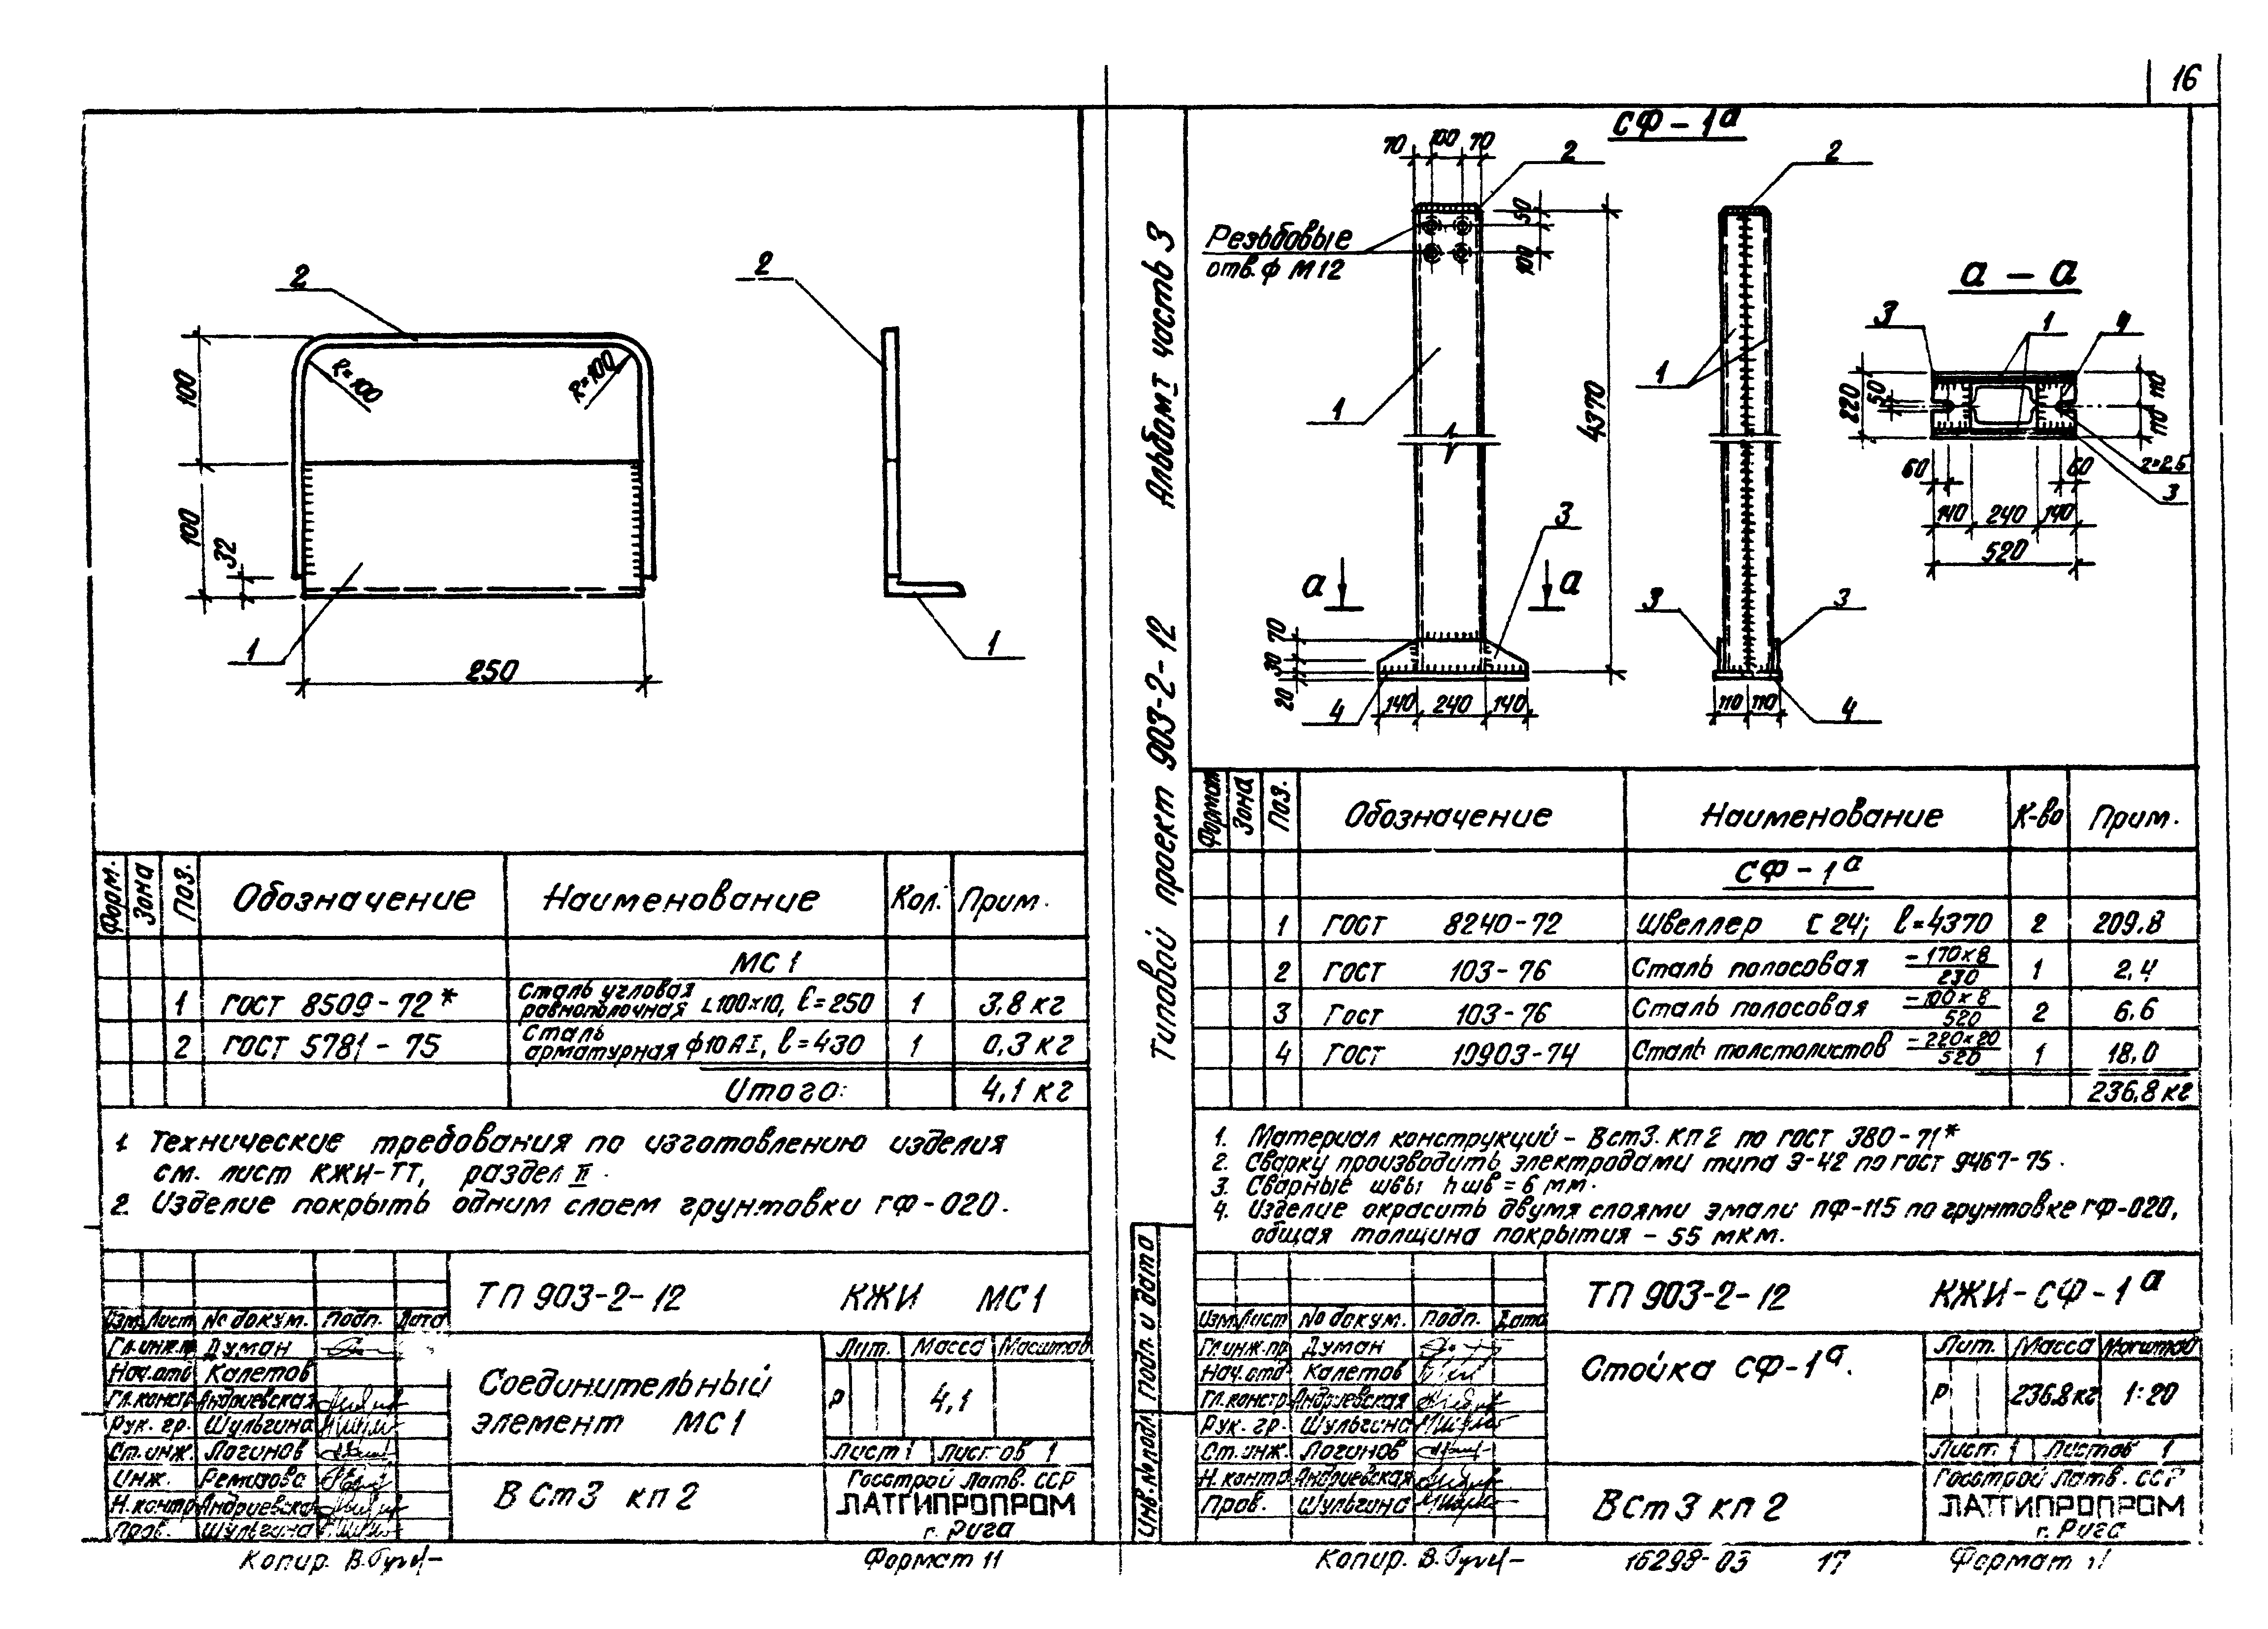 16
2
2
R=100
R=100
100
100
32
1
1
250
Форм.
Зона
Поз.
Обозначение
Наименование
Кол.
Прим.
МС 1
1 ГОСТ 8509-72* Сталь угловая равнополочная L100x10, ℓ=250 1 3,8 кг
2 ГОСТ 5781-75 Сталь арматурная ф10АI, ℓ=430 1 0,3 кг
Итого: 4,1 кг
1. Технические требования по изготовлению изделия
см. лист КЖИ-ТТ, раздел II.
2. Изделие покрыть одним слоем грунтовки ГФ-020.
ТП 903-2-12 КЖИ МС1
Изм. Лист № докум. Подп. Дата
Гл.инж.п Думан
Нач.отд Калетов
Гл.констр. Андриевская
Рук. гр. Шульгина
Ст.инж. Логинов
Инж. Ремизова
Н.контр. Андриевская
Пров. Шульгина
Соединительный
элемент МС1
Лит. Масса Масштаб
Р 4,1
Лист 1 Листов 1
В Ст3 кп2
Госстрой Латв. ССР
ЛАТГИПРОПРОМ
г. Рига
Копир.
Формат 11
Альбом I часть 3
Типовой проект 903-2-12
Подп. и дата
Инв. № подл.
СФ-1а
70 100 70
2
2
50
100
Резьбовые
отв. ф М12
4370
1
1
а а
3
3
3
70
30
20
4
140 240 140
110 110
4
а - а
3
1
4
220
50
110
110
60
60
r=25
3
140 240 140
520
Формат
Зона
Поз.
Обозначение
Наименование
К-во
Прим.
СФ-1а
1 ГОСТ 8240-72 Швеллер С 24; ℓ=4370 2 209.8
2 ГОСТ 103-76 Сталь полосовая -170x8/230 1 2,4
3 ГОСТ 103-76 Сталь полосовая -100x8/520 2 6.6
4 ГОСТ 19903-74 Сталь толстолистов -220x20/520 1 18,0
236,8 кг
1. Материал конструкций - ВСт3.кп2 по ГОСТ 380-71*
2. Сварку производить электродами типа Э-42 по ГОСТ 9467-75.
3. Сварные швы hшв=6 мм.
4. Изделие окрасить двумя слоями эмали ПФ-115 по грунтовке ГФ-020,
общая толщина покрытия - 55 мкм.
ТП 903-2-12 КЖИ-СФ-1а
Изм. Лист № докум. Подп. Дата
Гл.инж.пр Думан
Нач.отд. Калетов
Гл.констр. Андриевская
Рук. гр. Шульгина
Ст.инж. Логинов
Н.контр. Андриевская
Пров. Шульгина
Стойка СФ-1а.
Лит. Масса Масштаб
Р 236.8 кг 1:20
Лист 1 Листов 1
В Ст3 кп2
Госстрой Латв. ССР
ЛАТГИПРОПРОМ
г. Рига
Копир.
16298-03 17
Формат 11